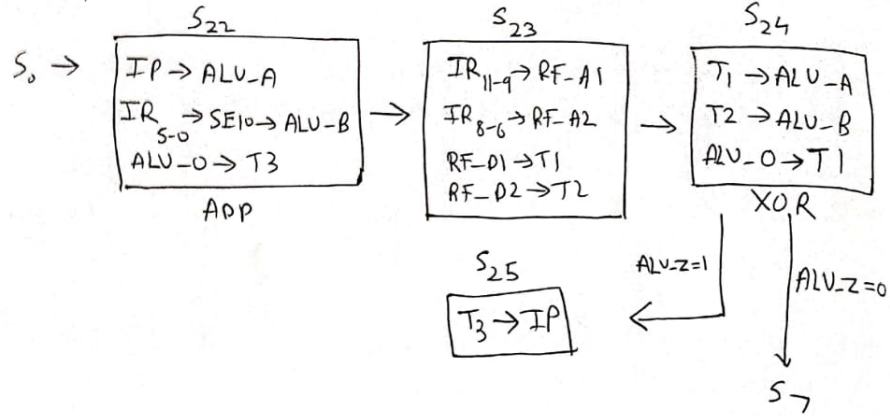 S₂₂
S₀ →
IP → ALU-A
IR₅₋₀ → SE10 → ALU-B
ALU-O → T3
ADD
S₂₃
IR₁₁₋₉ → RF-A1
IR₈₋₆ → RF-A2
RF-D1 → T1
RF-D2 → T2
S₂₄
T₁ → ALU-A
T2 → ALU-B
ALU-O → T1
XOR
ALU-Z=1
ALU-Z=0
S₂₅
T₃ → IP
S₇